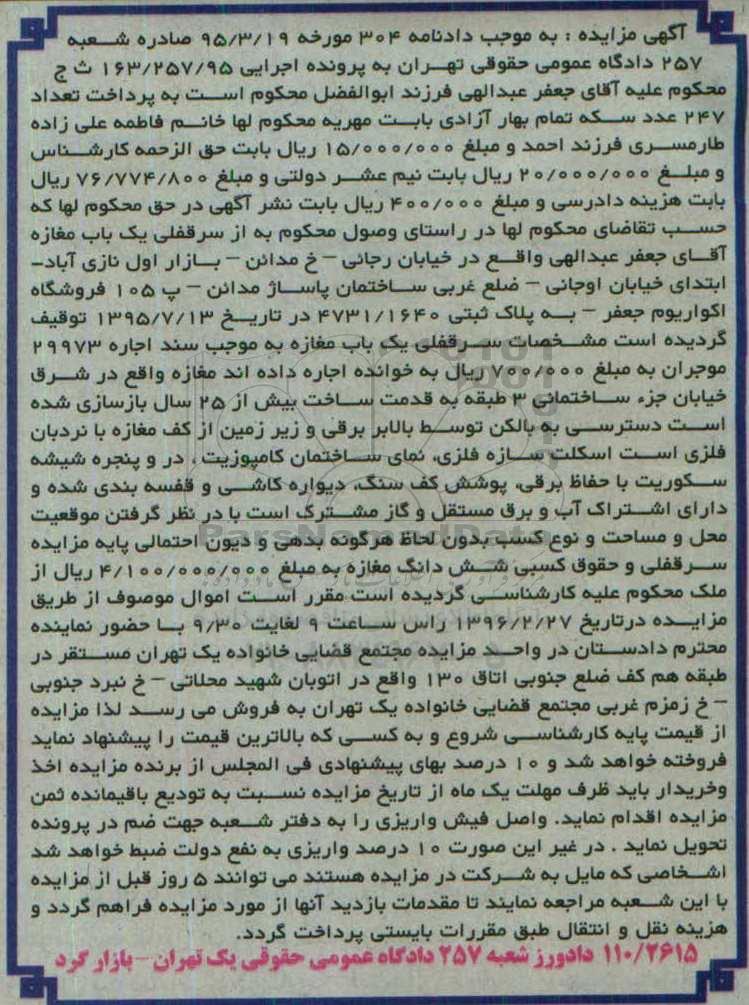 آگهی مزایده : به موجب دادنامه ۳۰۴ مورخه ۹۵/۳/۱۹ صادره شعبه
۲۵۷ دادگاه عمومی حقوقی تهران به پرونده اجرایی ۱۶۳/۲۵۷/۹۵ ث ج
محکوم علیه آقای جعفر عبدالهی فرزند ابوالفضل محکوم است به پرداخت تعداد
۲۴۷ عدد سکه تمام بهار آزادی بابت مهریه محکوم لها خانم فاطمه علی زاده
طارمسری فرزند احمد و مبلغ ۱۵/۰۰۰/۰۰۰ ریال بابت حق الزحمه کارشناس
و مبلغ ۲۰/۰۰۰/۰۰۰ ریال بابت نیم عشر دولتی و مبلغ ۷۶/۷۷۴/۸۰۰ ریال
بابت هزینه دادرسی و مبلغ ۴۰۰/۰۰۰ ریال بابت نشر آگهی در حق محکوم لها که
حسب تقاضای محکوم لها در راستای وصول محکوم به از سرقفلی یک باب مغازه
آقای جعفر عبدالهی واقع در خیابان رجائی – خ مدائن – بازار اول نازی آباد–
ابتدای خیابان اوجانی – ضلع غربی ساختمان پاساژ مدائن – پ ۱۰۵ فروشگاه
اکواریوم جعفر – به پلاک ثبتی ۴۷۳۱/۱۶۴۰ در تاریخ ۱۳۹۵/۷/۱۳ توقیف
گردیده است مشخصات سرقفلی یک باب مغازه به موجب سند اجاره ۲۹۹۷۳
موجران به مبلغ ۷۰۰/۰۰۰ ریال به خوانده اجاره داده اند مغازه واقع در شرق
خیابان جزء ساختمانی ۳ طبقه به قدمت ساخت بیش از ۲۵ سال بازسازی شده
است دسترسی به بالکن توسط بالابر برقی و زیر زمین از کف مغازه با نردبان
فلزی است اسکلت سازه فلزی، نمای ساختمان کامپوزیت ، در و پنجره شیشه
سکوریت با حفاظ برقی، پوشش کف سنگ، دیواره کاشی و قفسه بندی شده و
دارای اشتراک آب و برق مستقل و گاز مشترک است با در نظر گرفتن موقعیت
محل و مساحت و نوع کسب بدون لحاظ هرگونه بدهی و دیون احتمالی پایه مزایده
سرقفلی و حقوق کسبی شش دانگ مغازه به مبلغ ۴/۱۰۰/۰۰۰/۰۰۰ ریال از
ملک محکوم علیه کارشناسی گردیده است مقرر است اموال موصوف از طریق
مزایده درتاریخ ۱۳۹۶/۲/۲۷ راس ساعت ۹ لغایت ۹/۳۰ با حضور نماینده
محترم دادستان در واحد مزایده مجتمع قضایی خانواده یک تهران مستقر در
طبقه هم کف ضلع جنوبی اتاق ۱۳۰ واقع در اتوبان شهید محلاتی – خ نبرد جنوبی
– خ زمزم غربی مجتمع قضایی خانواده یک تهران به فروش می رسد لذا مزایده
از قیمت پایه کارشناسی شروع و به کسی که بالاترین قیمت را پیشنهاد نماید
فروخته خواهد شد و ۱۰ درصد بهای پیشنهادی فی المجلس از برنده مزایده اخذ
وخریدار باید ظرف مهلت یک ماه از تاریخ مزایده نسبت به تودیع باقیمانده ثمن
مزایده اقدام نماید. واصل فیش واریزی را به دفتر شعبه جهت ضم در پرونده
تحویل نماید . در غیر این صورت ۱۰ درصد واریزی به نفع دولت ضبط خواهد شد
اشخاصی که مایل به شرکت در مزایده هستند می توانند ۵ روز قبل از مزایده
با این شعبه مراجعه نمایند تا مقدمات بازدید آنها از مورد مزایده فراهم گردد و
هزینه نقل و انتقال طبق مقررات بایستی پرداخت گردد.
۱۱۰/۲۶۱۵ دادورز شعبه ۲۵۷ دادگاه عمومی حقوقی یک تهران – بازار گرد